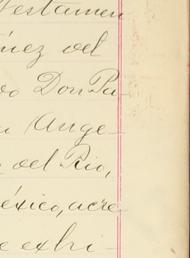 Testamen
ínez del
Don Pa-
Ange-
del Rio,
éxico, acre
exhi-